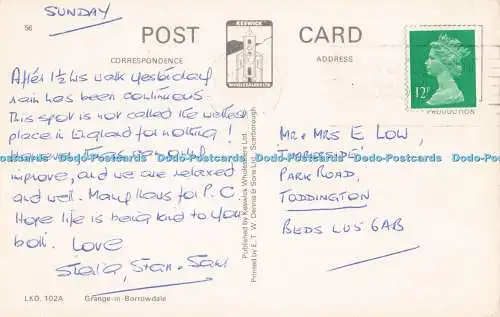 SUNDAY
56
POST CARD
CORRESPONDENCE
ADDRESS
KESWICK
WHOLESALERS LTD
12P
PRODUCTION
After 1½ hrs walk yesterday
rain has been continuous.
This spot is not called the wettest
place in England for nothing!
However things can only
improve, and we are relaxed
and well. Many thanks for P.C.
Hope life is being kind to you
both. Love
Stan
Mr & Mrs E LOW,
PARK ROAD,
TODDINGTON
BEDS LU5 6AB
Published by Keswick Wholesalers Ltd.
Printed by E. T. W. Dennis & Sons Ltd., Scarborough
Dodo-Postcards Dodo-Postcards Dodo-Postcards Dodo-Postcards Dodo-Postcards
LKD. 102A Grange-in-Borrowdale